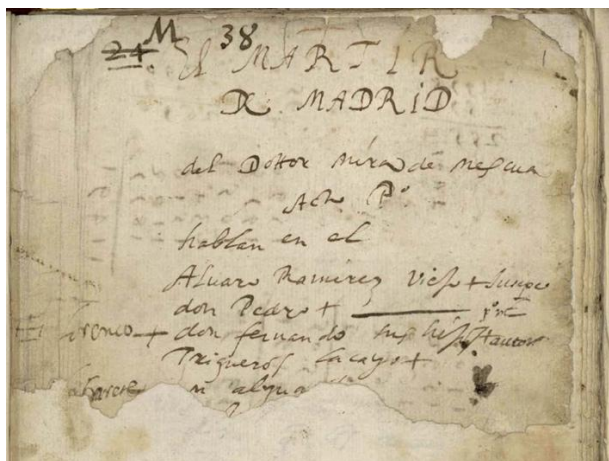 24 M 38
El MARTIR
DE MADRID
del Dottor Mira de Mescua
Acto Pº
hablan en el
Alvaro Ramirez viejo +
don Pedro +
+ don fernando sus hijos + autor
Trigueros lacayo +
un algua